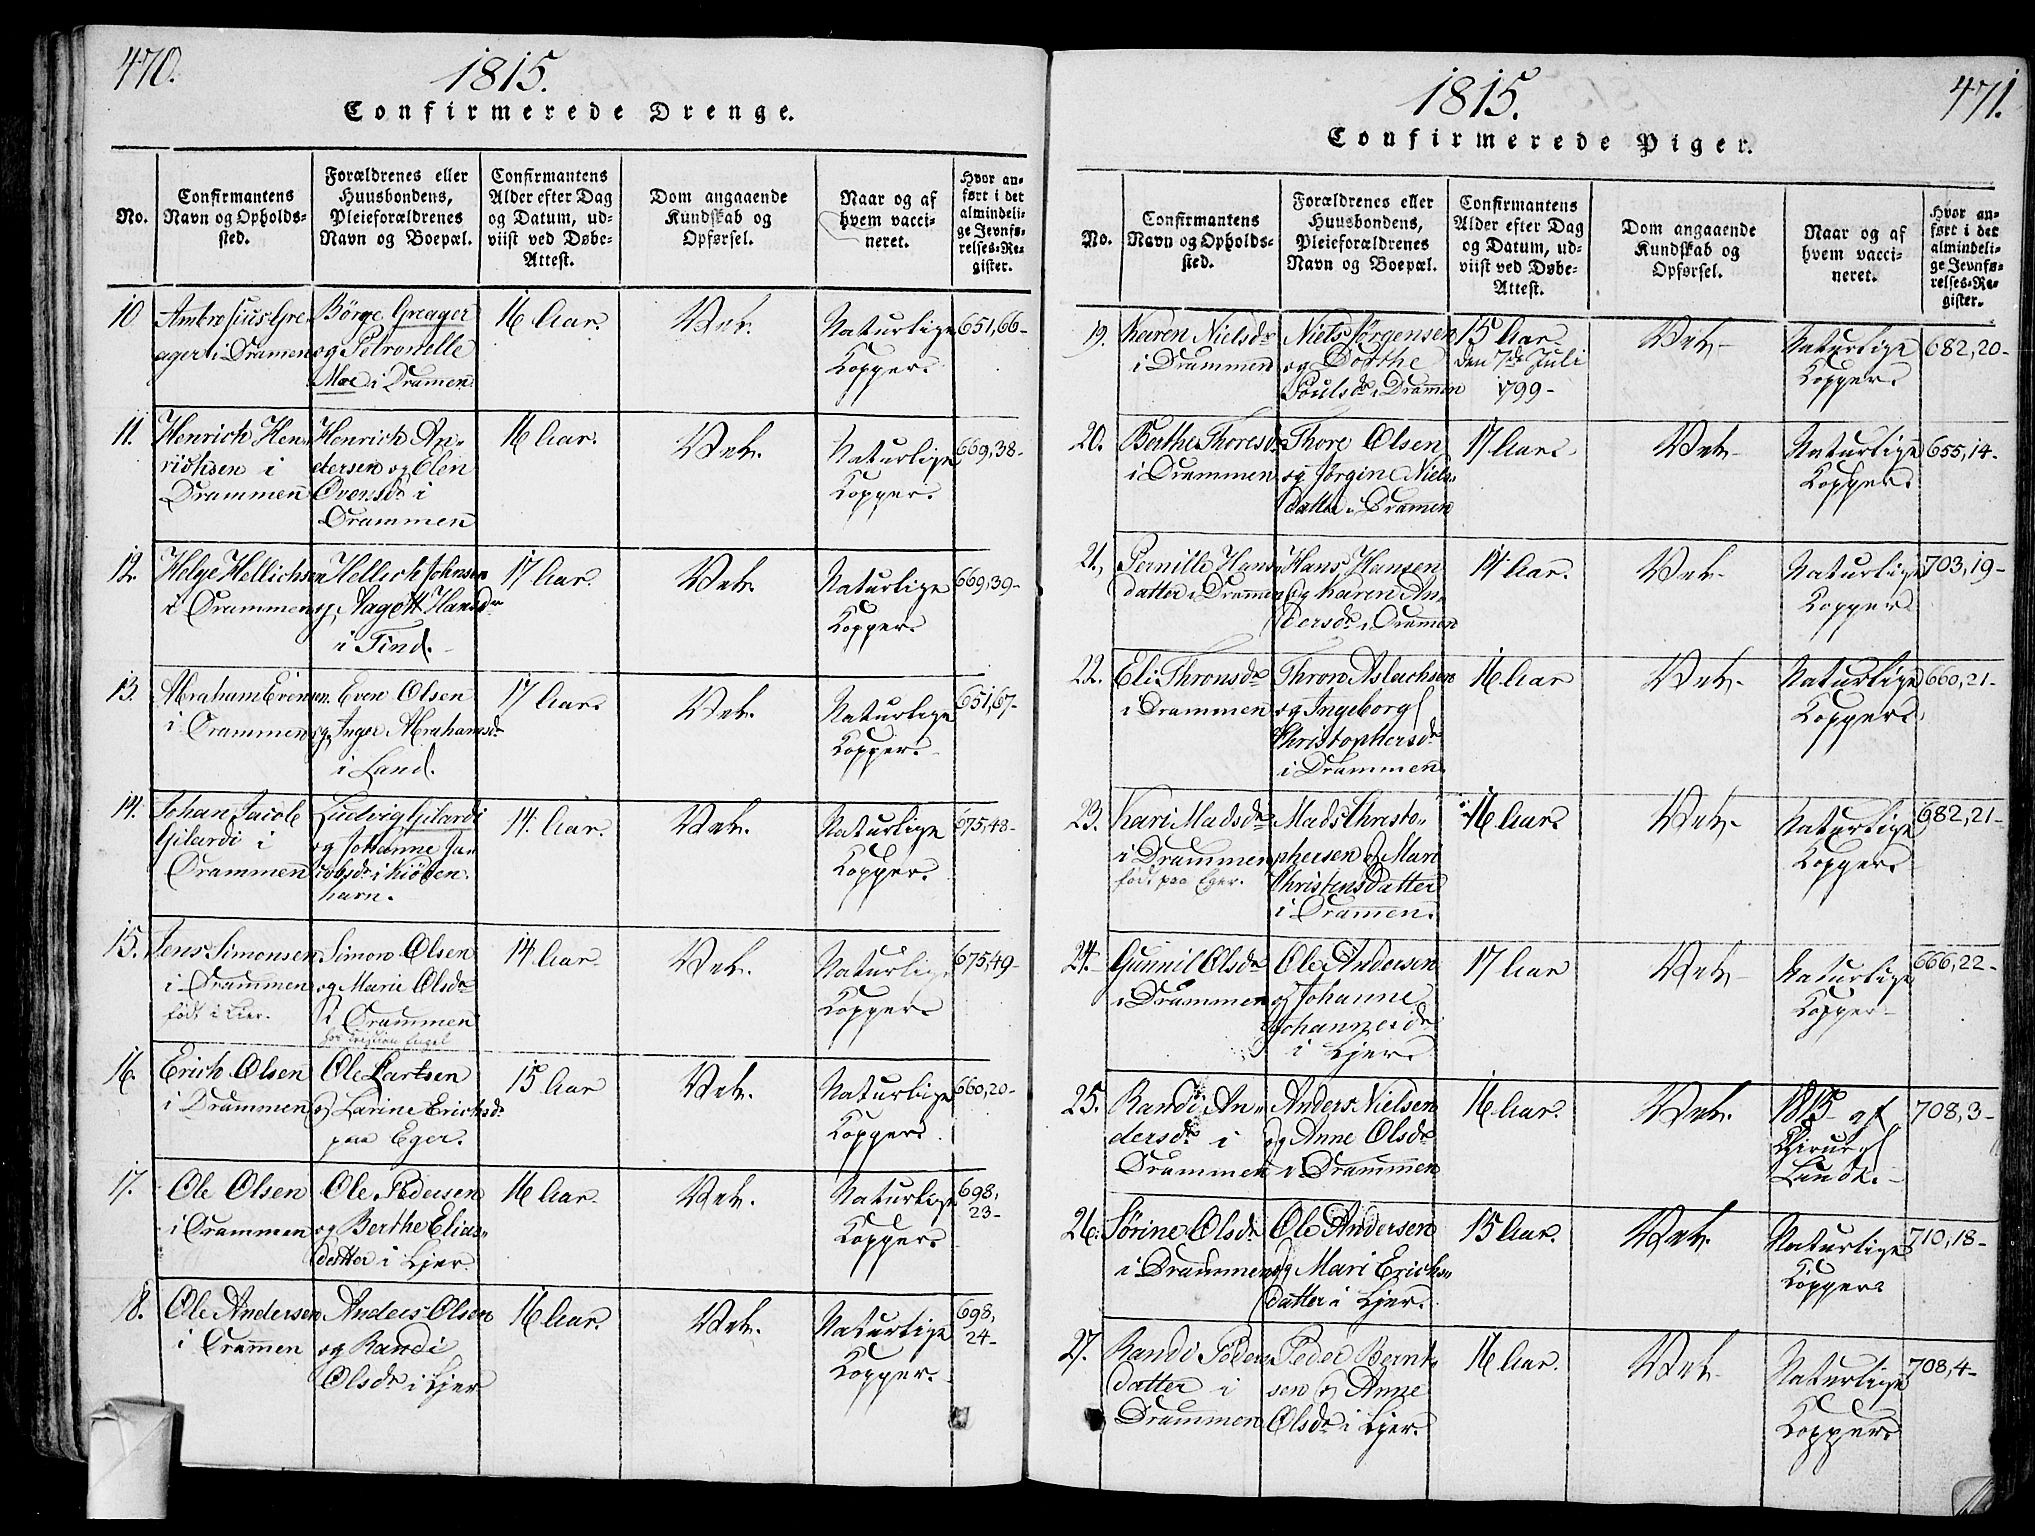 470.
1815.
Confirmerede Drenge.
No.
Confirmantens
Navn og Opholds-
sted.
Forældrenes eller
Huusbondens,
Pleieforældrenes
Navn og Boepæl.
Confirmantens
Alder efter Dag
og Datum, ud-
viist ved Døbe-
Attest.
Dom angaaende
Kundskab og
Opførsel.
Naar og af
hvem vacci-
neret.
Hvor an-
ført i det
almindeli-
ge Jevnfø-
relses-Re-
gister.
10
Ambrosius Gre-
ager i Dramen
Børge Greager
og Petronelle
Moe i Dramen.
16 Aar.
Naturlige
Kopper.
651,66-
11.
Henrich Hen-
richsen i
Drammen
Henrich An-
dersen og Elen
Oversdr i
Drammen
16 Aar.
Naturlige
Kopper.
669,38-
12.
Helge Hellichsen
i Drammen
Hellich Johnsen
og Aagott Hansdr
i Tind.
17 Aar.
Naturlige
Kopper.
669,39-
13.
Abraham Evensen
i Drammen
Even Olsen
og Inger Abrahamsdr
i Land.
17 Aar.
Naturlige
Kopper.
651,67-
14.
Johan Jacob
Gilardi i
Drammen
Ludvig Gilardi
og Johanne Ja-
cobsdr i Kiøben-
havn.
14. Aar.
Naturlige
Kopper.
675,48-
15.
Jens Simonsen
i Drammen
født i Lier.
Simon Olsen
og Marie Olsdr
i Drammen
hos Cristian Engel
14 Aar.
Naturlige
Kopper.
675,49-
16.
Erich Olsen
i Drammen
Ole Lartsen
og Larine Erichsdr
paa Eger.
15 Aar
Naturlige
Kopper.
660,20-
17.
Ole Olsen
i Drammen
Ole Pedersen
og Berthe Elias-
datter i Ljer.
16 Aar.
Naturlige
Kopper.
698,
23-
18.
Ole Andersen
i Dramen
Anders Olsen
og Randi
Olsdr i Ljer
16 Aar.
Naturlige
Kopper.
698,
24-
471.
1815.
Confirmerede Piger.
No.
Confirmantens
Navn og Opholds-
sted.
Forældrenes eller
Huusbondens,
Pleieforældrenes
Navn og Boepæl.
Confirmantens
Alder efter Dag
og Datum, ud-
viist ved Døbe-
Attest.
Dom angaaende
Kundskab og
Opførsel.
Naar og af
hvem vacci-
neret.
Hvor an-
ført i det
almindeli-
ge Jevnfø-
relses-Re-
gister.
19.
Karen Nielsdr
i Drammen
Niels Jørgensen
og Dorthe
Poulsdr i Dramen
15 Aar.
den 7de Juli
1799-
Naturlige
Kopper.
682,20-
20.
Berthe Thoresdr
i Drammen
Thore Olsen
og Jørgine Niels-
datter i Dramen
17 Aar.
Naturlige
Kopper.
655,14-
21.
Pernille Hans-
datter i Drammen
Hans Hansen
og Karen An-
dersdr i Dramen
14 Aar.
Naturlige
Kopper.
703,19-
22.
Eli Thronsdr
i Drammen
Thron Aslachsen
og Ingeborg
Christophersdr
i Drammen.
16 Aar
Naturlige
Kopper.
660,21-
23.
Kari Madsdr
i Drammen
født paa Eger.
Mads Christo-
phersen og Mari
Christensdatter
i Dramen.
16 Aar.
Naturlige
Kopper.
682,21-
24.
Gunnil Olsdr
i Drammen
Ole Andersen
og Johanne
Johannesdr
i Ljer.
17 Aar
Naturlige
Kopper-
666,22-
25.
Randi An-
dersdr i
Drammen
Anders Nielsen
og Anne Olsdr
i Drammen
16 Aar.
1815 af
Chirurg
Lund.-
708,3-
26.
Sørine Olsdr
i Drammen
Ole Andersen
og Mari Erichs-
datter i Ljer.
15 Aar.
Naturlige
Kopper.
710,18-
27.
Randi Peders-
datter i
Drammen
Peder Bernt-
sen og Anne
Olsdr i Ljer.
16 Aar.
Naturlige
Kopper.
708,4-